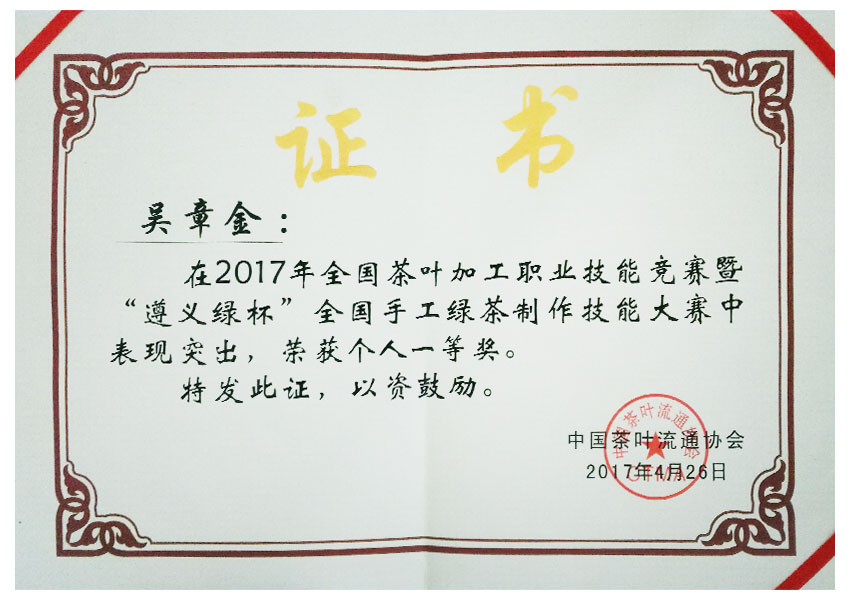 证书
吴章金：
在2017年全国茶叶加工职业技能竞赛暨
“遵义绿杯”全国手工绿茶制作技能大赛中
表现突出，荣获个人一等奖。
特发此证，以资鼓励。
中国茶叶流通协会
2017年4月26日
中国茶叶流通协会
CTMA